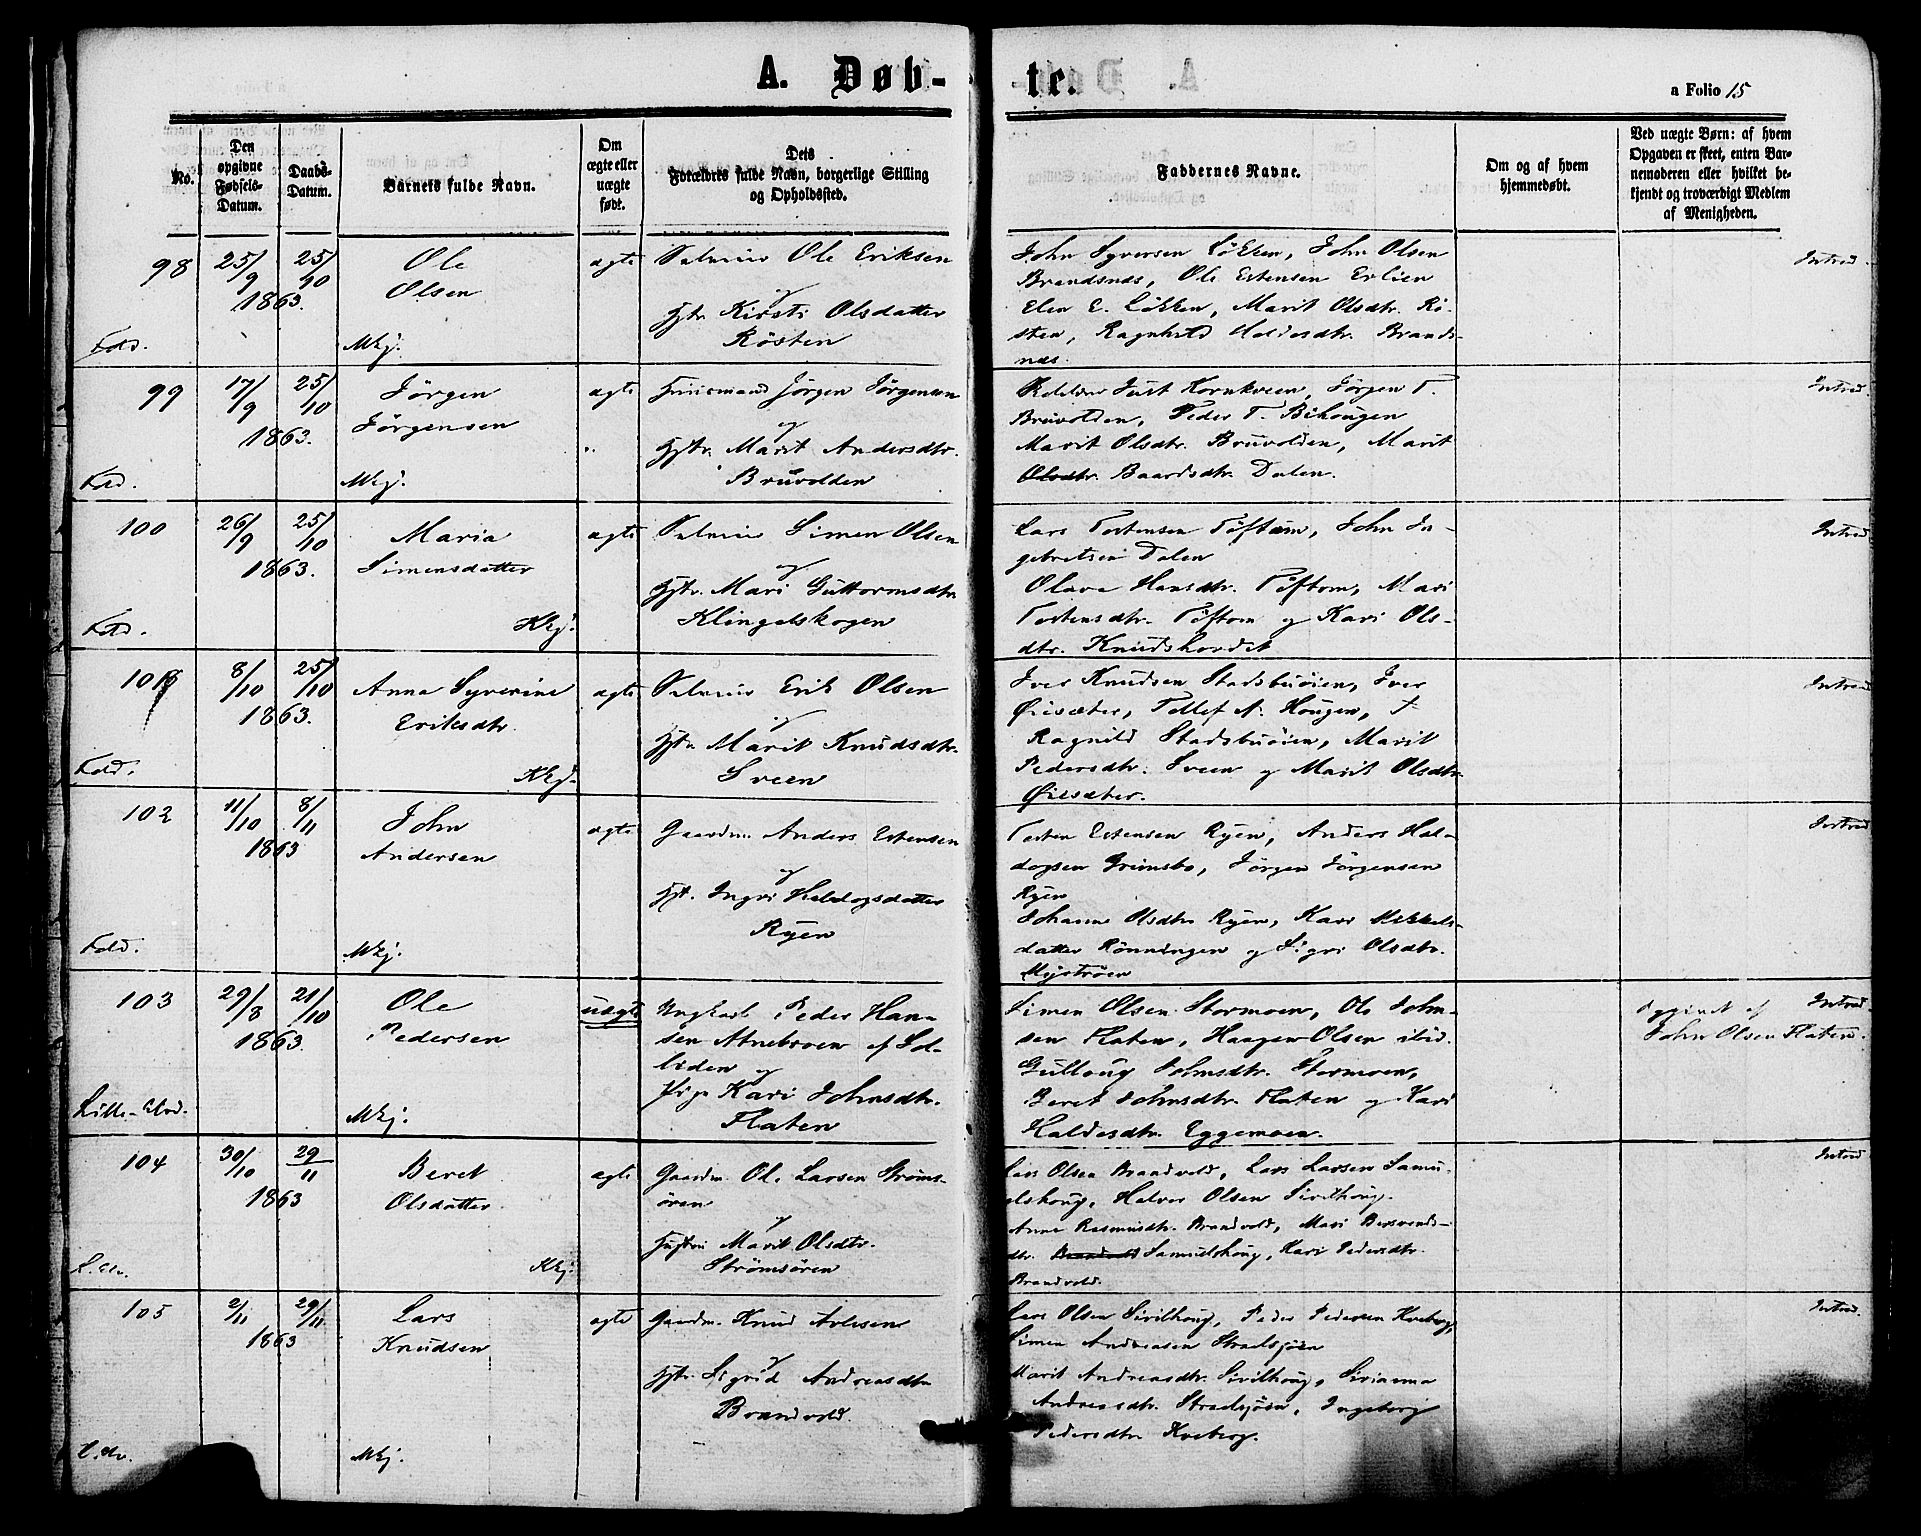 A. Døb-
te.
a Folio 15
No.
Den
opgivne
Fødsels-
Datum.
Daabs-
Datum.
Barnets fulde Navn.
Om
ægte eller
uægte
født.
Dets
Forældres fulde Navn, borgerlige Stilling
og Opholdssted.
Faddernes Navne.
Om og af hvem
hjemmedøbt.
Ved uægte Børn: af hvem
Opgaven er skeet, enten Bar-
nemoderen eller hvilket be-
kjendt og troværdigt Medlem
af Menigheden.
98
25/9
25/10
1863.
Ole
Olsen
Fold.
Mkj.
ægte
Selveier Ole Eriksen
og
Hstr. Kirsti Olsdatter
Røsten
John Syversen Løkken, John Olsen
Brandsnæs, Ole Estensen Erlien
Elen E. Løkken, Marit Olsdtr. Rø-
sten, Ragnhild Haldosdtr. Brands-
næs.
Introd.
99
17/9
25/10
1863.
Jørgen
Jørgensen
Fold.
Mkj.
ægte
Huusmand Jørgen Jørgensen
og
Hstr. Marit Andersdtr.
Bruvolden
Just Kornkveen, Jørgen T.
Bruvolden, Peder T. Bihougen
Marit Olsdtr. Bruvolden, Marit
Olsdtr. Baardsdtr. Dalen.
Introd.
100
26/9
25/10
1863.
Maria
Simensdatter
Fold.
Kkj.
ægte
Selveier Simen Olsen
og
Hstr. Mari Guttormsdtr.
Klingelskogen
Lars Tostensen Tøftom, John In-
gebretsen Dalen
Olava Hansdtr. Tøftom, Mari
Tostensdtr. Tøftom og Kari Ols-
dtr. Knudshovdet
Introd.
101
8/10
25/10
1863.
Anna Syverine
Eriksdtr.
Fold.
Kkj.
ægte
Selveier Erik Olsen
og
Hstr. Marit Knudsdtr.
Sveen
Iver Knudsen Stadsbuøien, Iver
Øiesæter, Tollef A. Hougen,
Ragnild Stadsbuøien, Marit
Pedersdtr. Sveen og Marit Olsdtr.
Øiesæter.
Introd.
102
11/10
8/11
1863
John
Andersen
Fold.
Mkj.
ægte
Gaardm. Anders Estensen
og
Hst. Ingri Haldogsdatter
Ryen
Tosten Estensen Ryen, Anders Hal-
dogsen Grimsbo, Jørgen Jørgensen
Ryen
Johanne Olsdtr. Ryen, Kari Mikkels-
datter Rønningen og Sigri Olsdtr.
Mystrøen
Introd.
103
29/8
21/10
1863.
Ole
Pedersen
Lille-Elvd.
Mkj.
uægte
Ungkarl Peder Han-
sen Atnebroen af Sol-
liden og
Pige Kari Johnsdtr.
Flaten
Simen Olsen Stormoen, Ole John-
sen Flaten, Haagen Olsen ibid.
Gulloug Johnsdtr. Stormoen,
Beret Johnsdtr. Flaten og Kari
Haldosdtr. Eggemoen.
Opgivet af
John Olsen Flaten.
Introd.
104
30/10
29/11
1863
Beret
Olsdatter
L. Elv.
Kkj.
ægte
Gaardm. Ole Larsen Strøms-
øren
og
Hustru Marit Olsdtr.
Strømsøren
Lars Olsen Brandvold, Lars Larsen Samu-
elshoug, Halvor Olsen Sivilhoug.
Anne Rasmusdtr. Brandvold, Mari Bersvends-
dtr. Brandvold Samuelshoug, Kari Pedersdtr.
Brandvold.
Introd.
105
2/11
29/11
1863
Lars
Knudsen
L. Elv.
Mkj.
ægte
Gaardm. Knud Arnesen
og
Hstr. Sigrid Andreasdtr.
Brandvold.
Lars Olsen Sivilhoug, Peder Pedersen Kveberg,
Simen Andreasen Stradsjøen
Marit Andreasdtr. Sivilhoug, Sirianna
Andreasdtr. Stradsjøen, Ingeborg
Pedersdtr. Kveberg.
Introd.